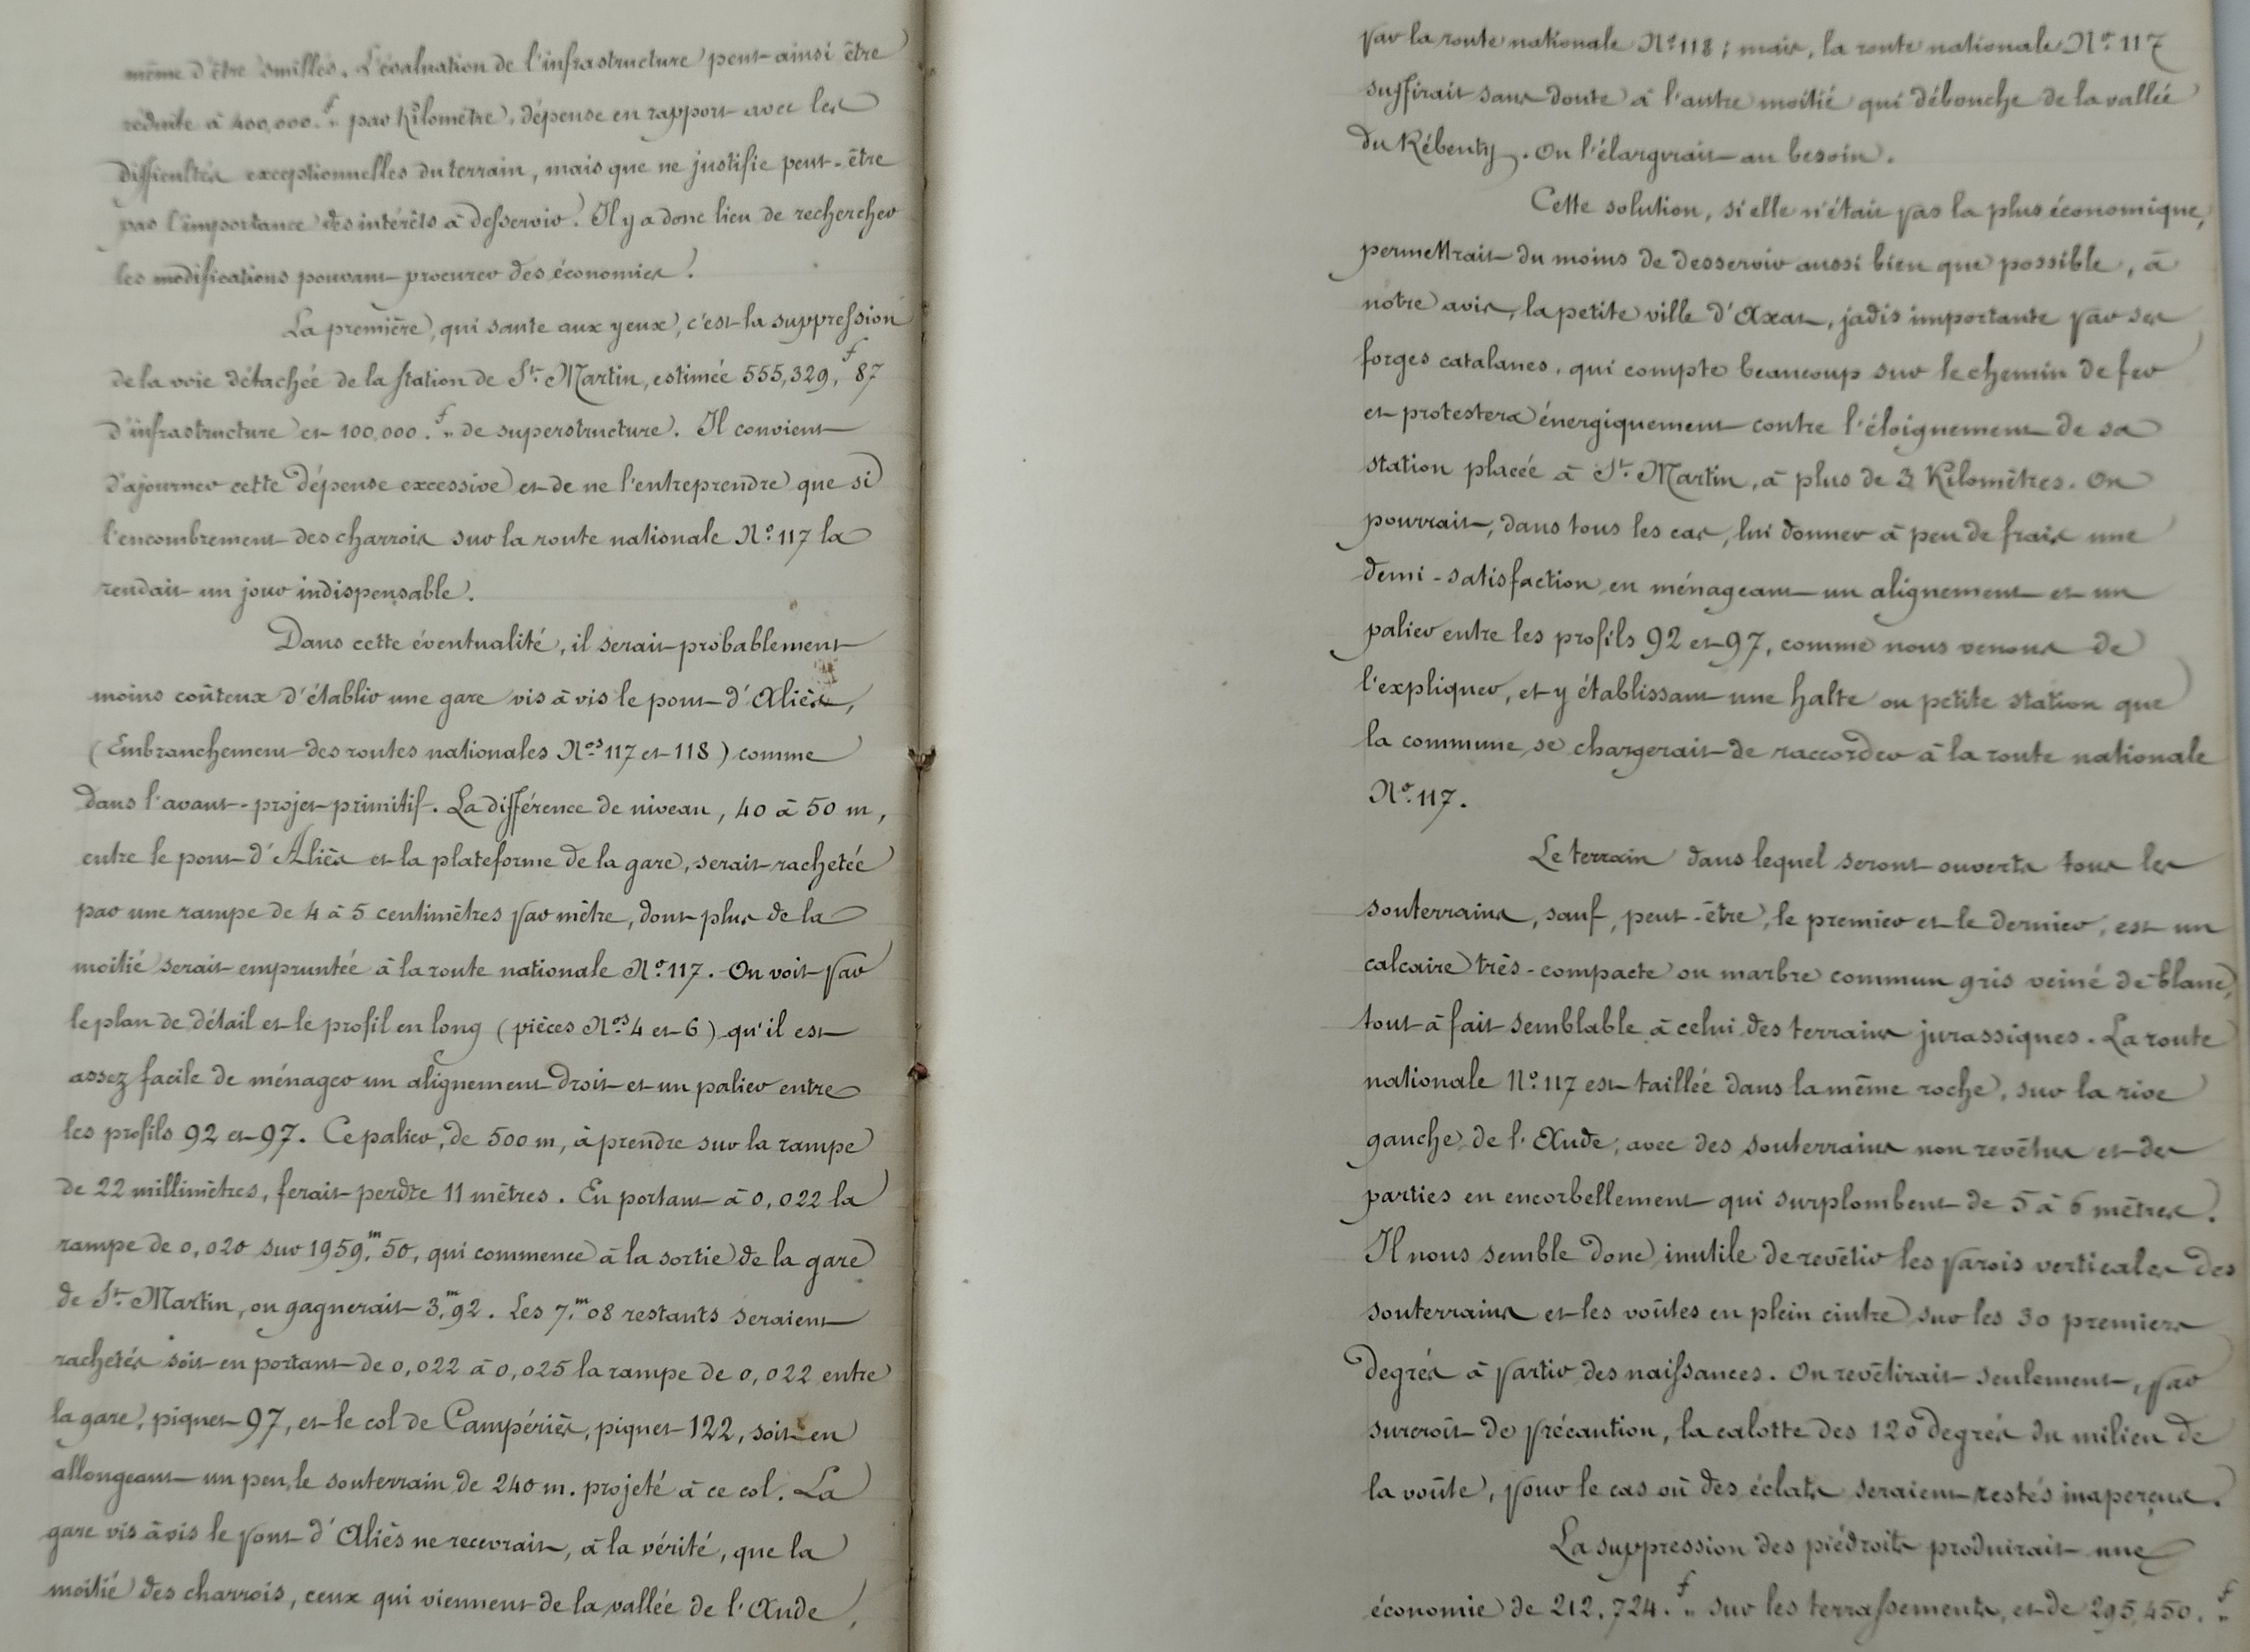 même d'être smillés. L'évaluation de l'infrastructure peut ainsi être
réduite à 400,000.f " par Kilomètre, dépense en rapport avec les
difficultés exceptionnelles du terrain, mais que ne justifie peut-être
pas l'importance des intérêts à desservir. Il y a donc lieu de rechercher
les modifications pouvant procurer des économies.
La première, qui saute aux yeux, c'est la suppression
de la voie détachée de la station de St. Martin, estimée 555,329,f 87
d'infrastructure et 100,000.f " de superstructure. Il convient
d'ajourner cette dépense excessive et de ne l'entreprendre que si
l'encombrement des charrois sur la route nationale No. 117 la
rendait un jour indispensable.
Dans cette éventualité, il serait probablement
moins coûteux d'établir une gare vis à vis le pont d'Aliès,
(Embranchement des routes nationales Nos. 117 et 118) comme
dans l'avant-projet primitif. La différence de niveau, 40 à 50 m,
entre le pont d'Aliès et la plateforme de la gare, serait rachetée
par une rampe de 4 à 5 centimètres par mètre, dont plus de la
moitié serait empruntée à la route nationale No. 117. On voit par
le plan de détail et le profil en long (pièces Nos. 4 et 6) qu'il est
assez facile de ménager un alignement droit et un palier entre
les profils 92 et 97. Ce palier, de 500 m, à prendre sur la rampe
de 22 millimètres, ferait perdre 11 mètres. En portant à 0,022 la
rampe de 0,020 sur 1959,m50, qui commence à la sortie de la gare
de St. Martin, on gagnerait 3,m92. Les 7,m08 restants seraient
rachetés soit en portant de 0,022 à 0,025 la rampe de 0,022 entre
la gare, piquet 97, et le col de Campériès, piquet 122, soit en
allongeant un peu, le souterrain de 240 m. projeté à ce col. La
gare vis à vis le pont d'Aliès ne recevrait, à la vérité, que la
moitié des charrois, ceux qui viennent de la vallée de l'Aude,
par la route nationale No. 118; mais, la route nationale No. 117
suffirait sans doute à l'autre moitié qui débouche de la vallée
du Rébenty. On l'élargirait au besoin.
Cette solution, si elle n'était pas la plus économique,
permettrait du moins de desservir aussi bien que possible, à
notre avis, la petite ville d'Axat, jadis importante par ses
forges catalanes, qui compte beaucoup sur le chemin de fer
et protestera énergiquement contre l'éloignement de sa
station placée à St. Martin, à plus de 3 Kilomètres. On
pourrait, dans tous les cas, lui donner à peu de frais une
demi-satisfaction en ménageant un alignement et un
palier entre les profils 92 et 97, comme nous venons de
l'expliquer, et y établissant une halte ou petite station que
la commune se chargerait de raccorder à la route nationale
No. 117.
Le terrain dans lequel seront ouverts tous les
souterrains, sauf, peut-être, le premier et le dernier, est un
calcaire très-compacte ou marbre commun gris veiné de blanc,
tout à fait semblable à celui des terrains jurassiques. La route
nationale No. 117 est taillée dans la même roche, sur la rive
gauche de l'Aude, avec des souterrains non revêtus et des
parties en encorbellement qui surplombent de 5 à 6 mètres.
Il nous semble donc inutile de revêtir les parois verticales des
souterrains et les voûtes en plein cintre sur les 30 premiers
degrés à partir des naissances. On revêtirait seulement, par
surcroît de précaution, la calotte des 120 degrés du milieu de
la voûte, pour le cas où des éclats seraient restés inaperçus.
La suppression des piédroits produirait une
économie de 212,724.f " sur les terrassements, et de 295,450.f "